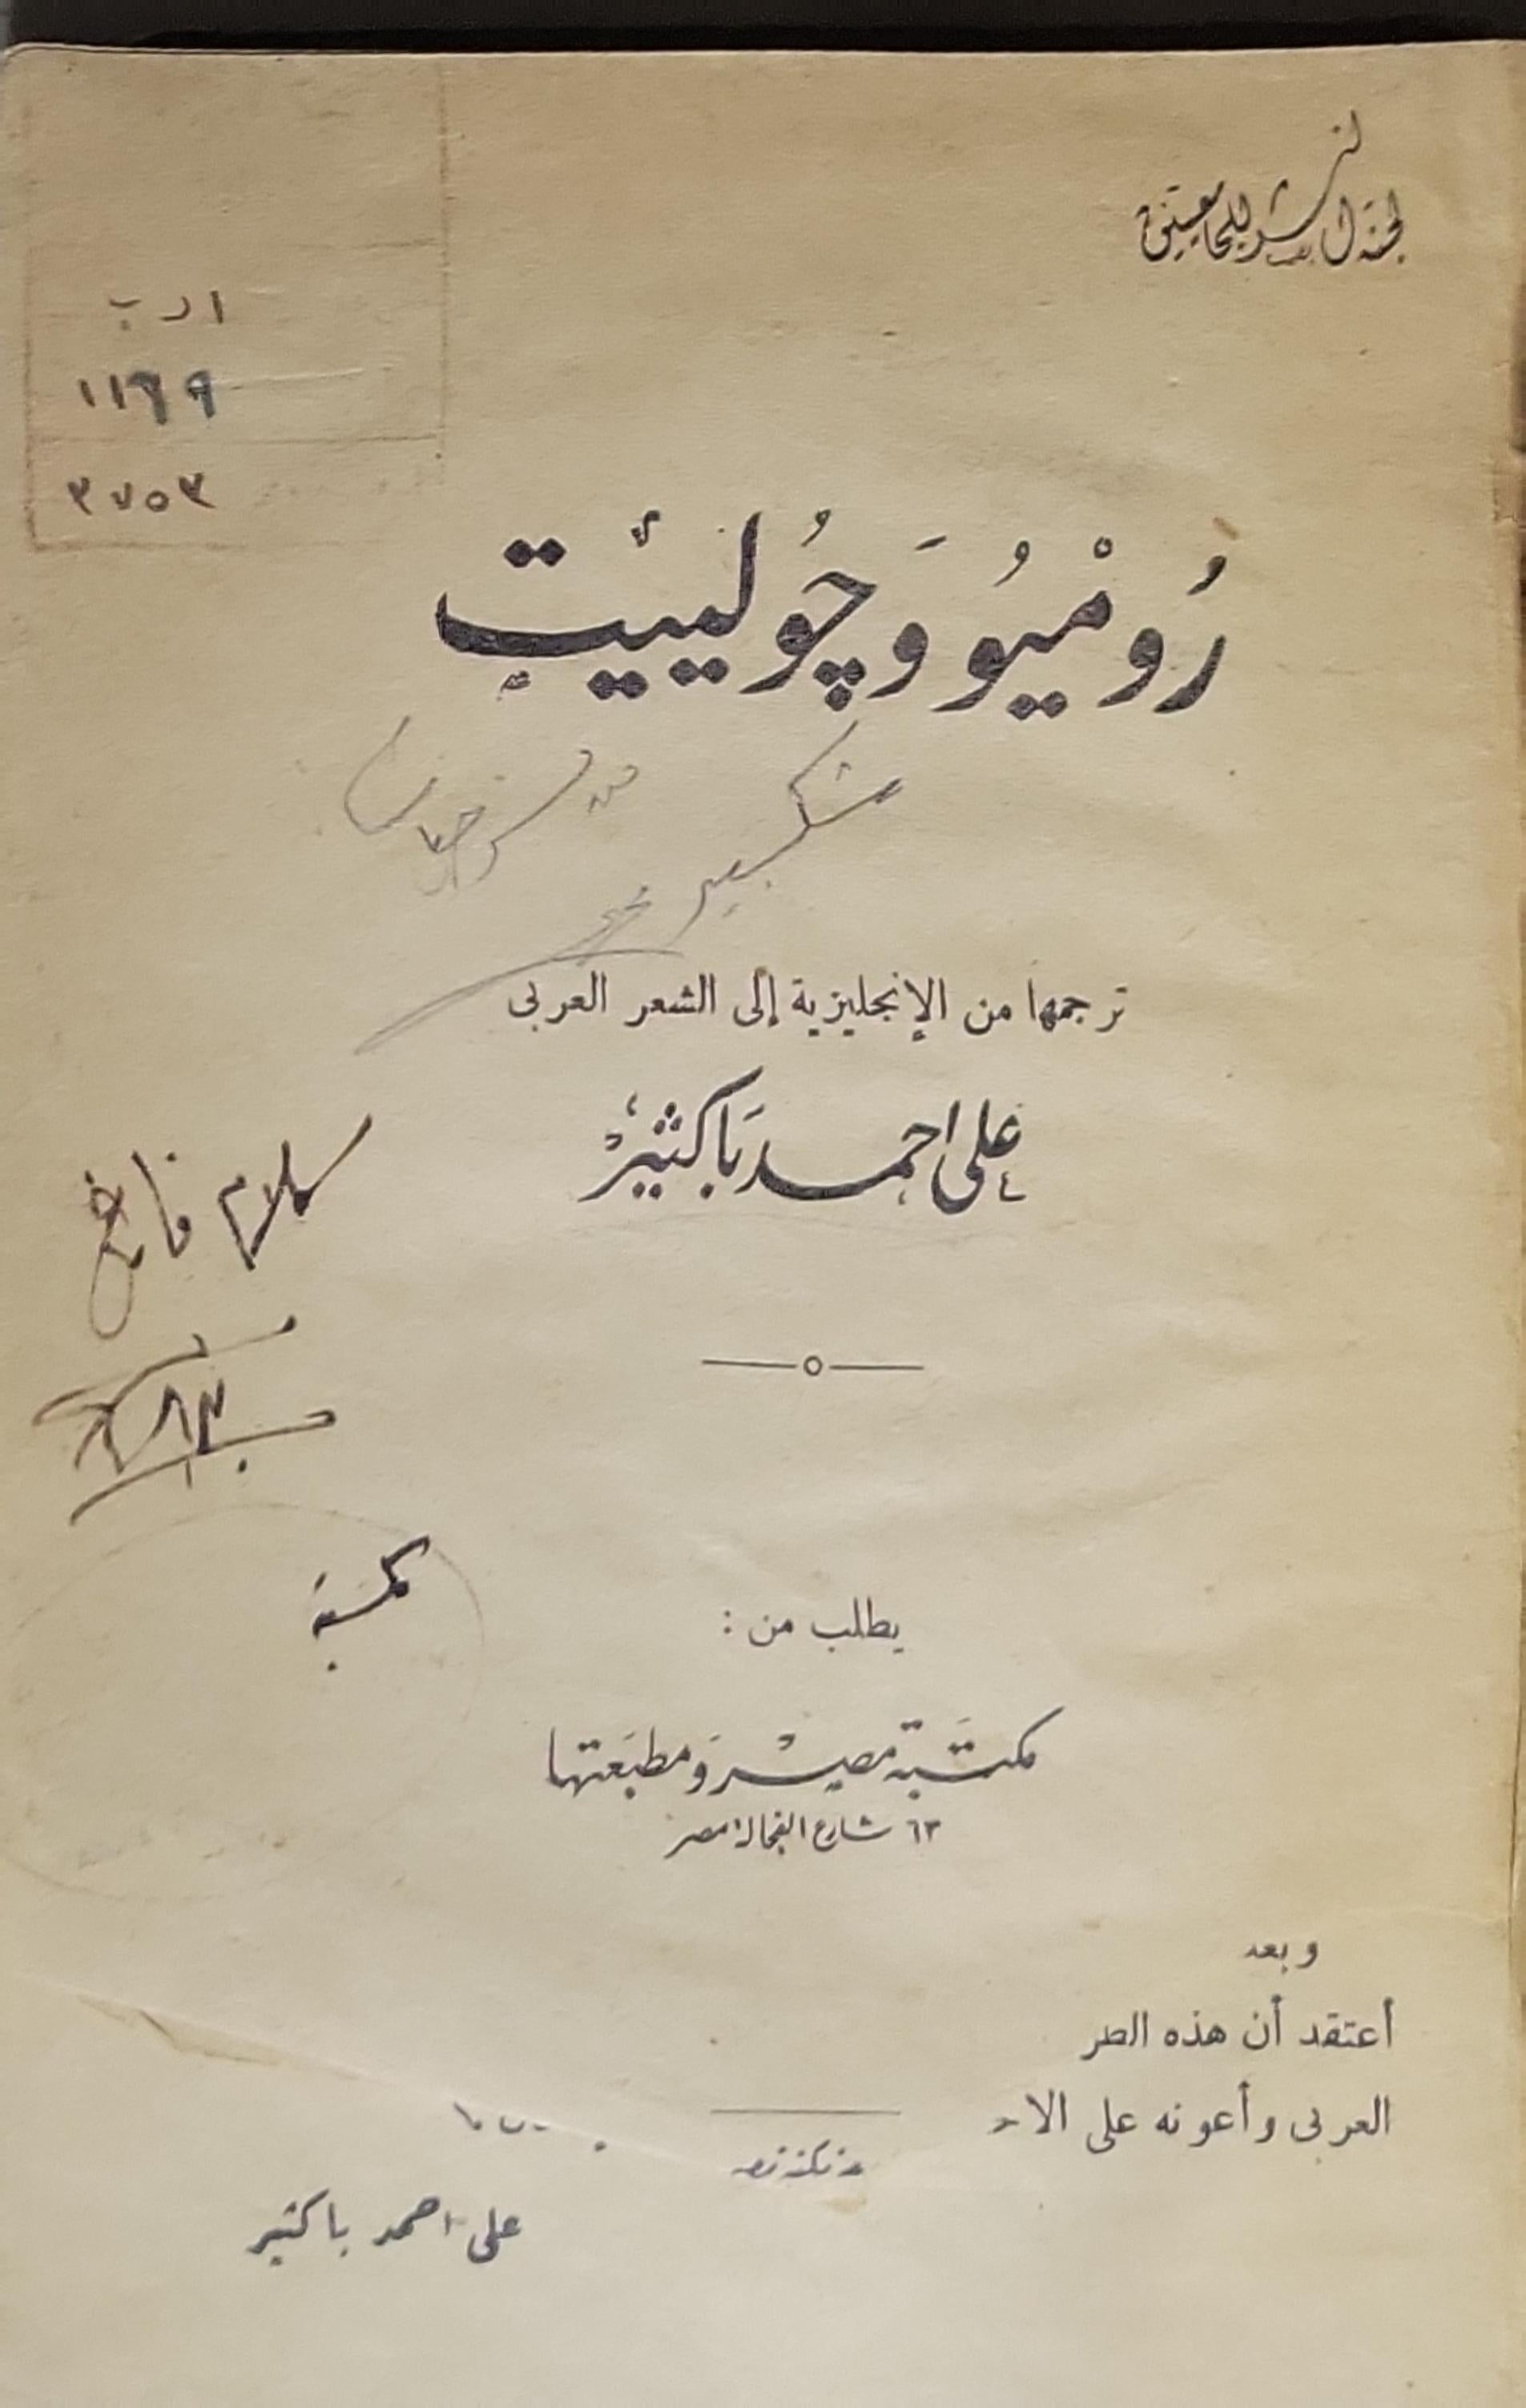 لجنة النشر للجامعيين
ادب
١١٢٩
٣٧٥٣
رُومْيُو وَچُولييئت
شكسبير
ترجمها من الإنجليزية إلى الشعر العربى
على احمد باكثير
كلام فارغ
يطلب من :
مكتبة مصر ومطبعتها
٦٣ شارع الفجالة مصر
وبعد
أعتقد أن هذه الطر
العربى وأعونه على الا
على احمد باكثير